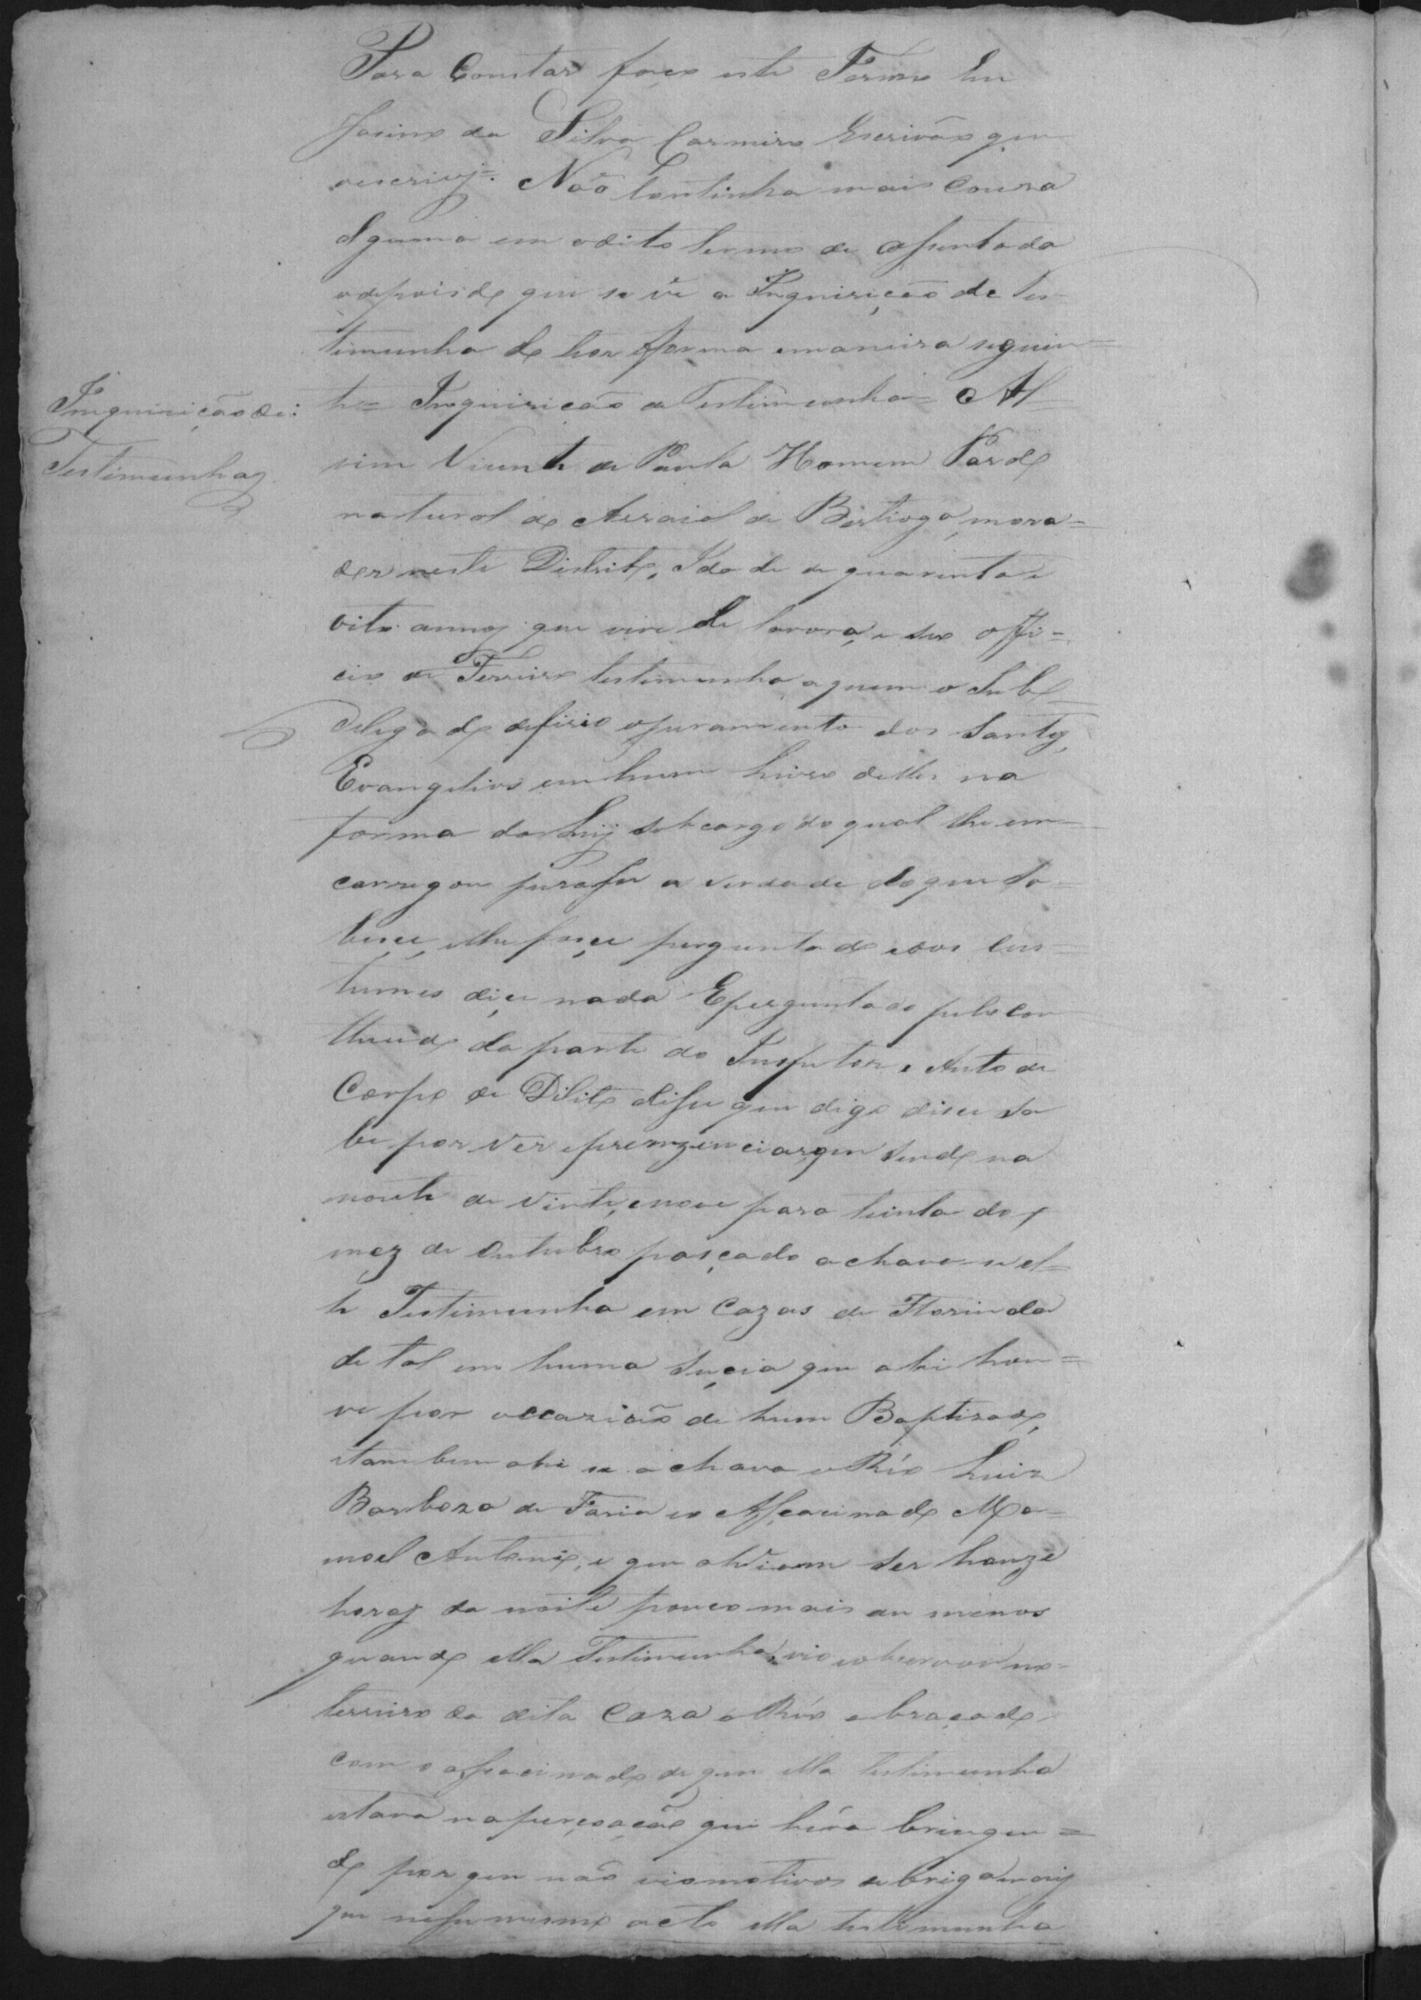 Para Constar faço este Termo Eu
da Silva Carneiro Escrivão que
oescrivy. Não Continha mais Couza
alguma em odito termo de assentada
odepois do que se vê a Inquirição de tes-
timunha do thior forma emaneira seguin=
Inquirição de:
Testimunhas
te= Inquirição de Testimunha= Al-
sim Vicente de Paula Homem Pardo
natural do Arraial de Bertioga, mora=
dor neste Distrito, Idade de quarenta e
oito annos que vive de lavora, e seo offi=
cio de Ferreiro testimunha aquem o Sub-
delegado defirio ojuramento dos Santos
Evangelios em hum Livro delles na
forma da Ley sob cargo do qual lhe en-
carregou juraçe a verdade do que So-
beçe, elhe foçe perguntado e aos Cus-
tumes diçe nada Eperguntado pelo Con
theudo da parte do Inspetor, e Auto de
Corpo de Dilito dise que digo dise Sa
be por ver eprezenciar, que sendo na
noute de vinte, enove para trinta do
mez de Outubro pasçado achava-se el-
le Testimunha em Cazas de Florinda
de tal em huma suçia que ahi hou=
ve por occazião de hum Baptizado,
etambem ahi se achava o Réo Luiz
Barboza de Faria eo Asçacinado Ma-
noel Antonio, e que ahviam ser honze
horas da noite pouco mais ou menos
quando ella Testimunha, vio eobservou no-
terreiro da dita Caza o Réo abraçado
com o asçacinado de que ella testimunha
estava napersoação que héra brinquen=
do por que não vio motivos de briga mais
que nesse mesmo acto ella testimunha